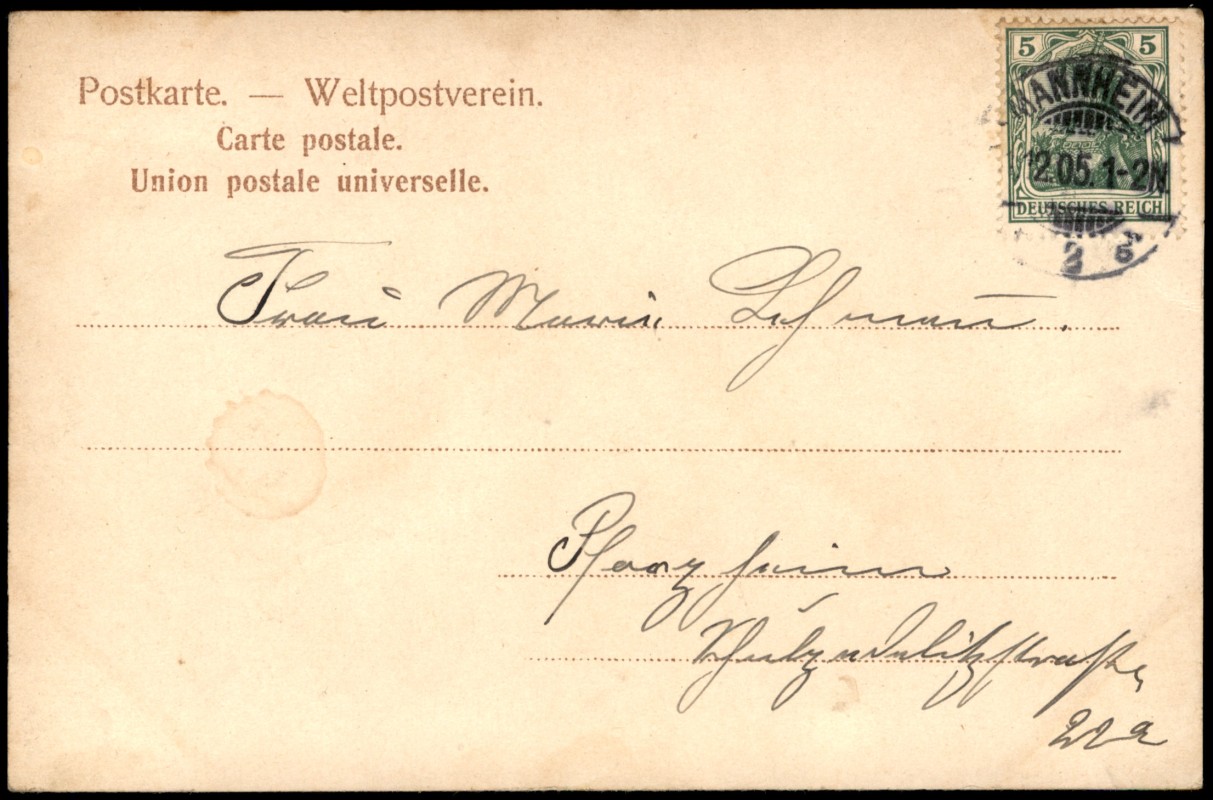 Postkarte. — Weltpostverein.
Carte postale.
Union postale universelle.
5 5
MANNHEIM
12.05. 1-2N
DEUTSCHES REICH
2
Frau Marie Lehmann.
Pforzheim
Schulzedelitzschstraße
22a